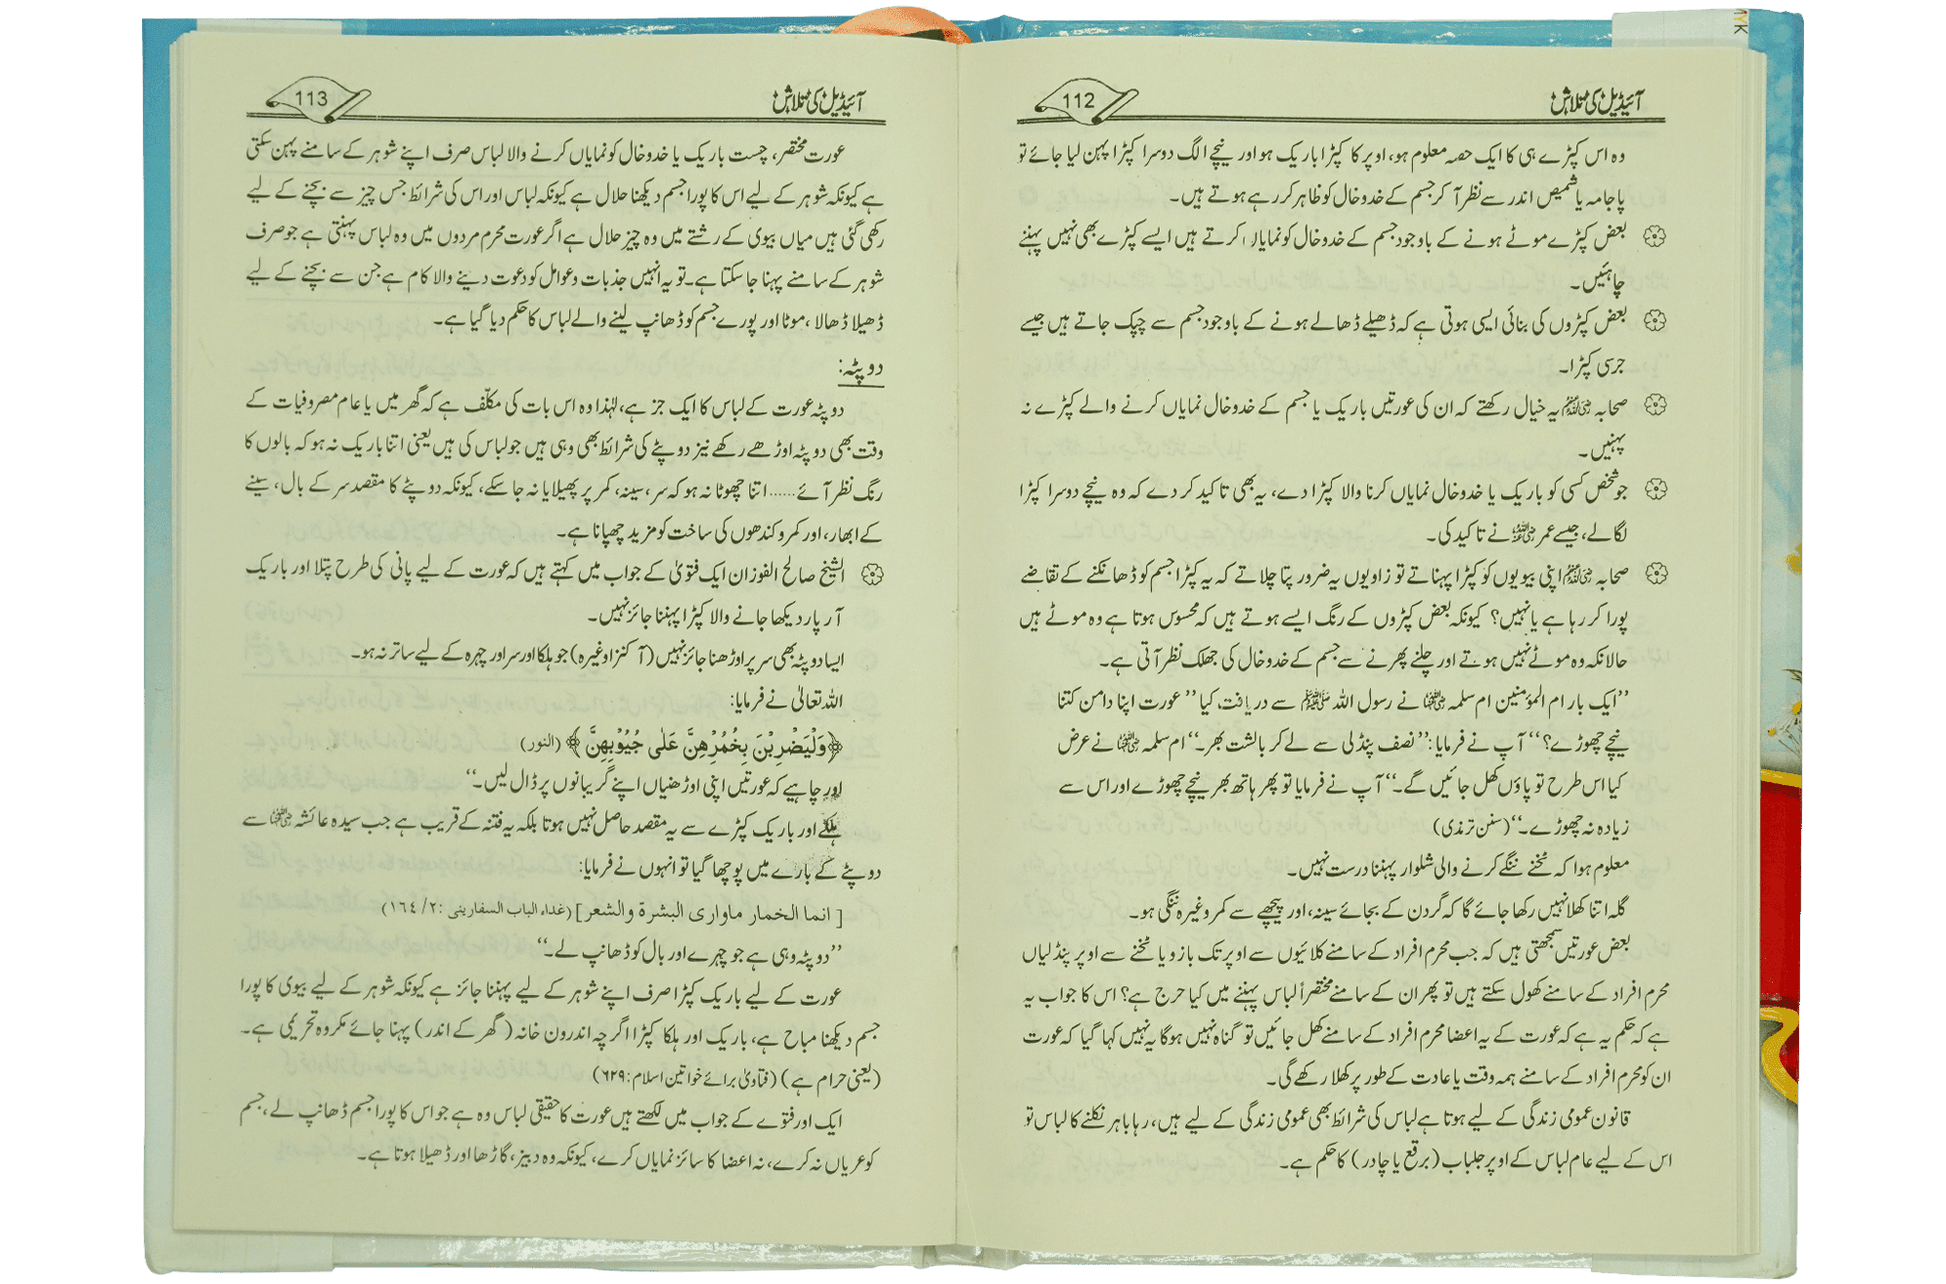 آئیڈیل کی تلاش
112
وہ اس کپڑے ہی کا ایک حصہ معلوم ہو، اوپر کا کپڑا باریک ہو اور نیچے الگ دوسرا کپڑا پہن لیا جائے تو
پاجامہ یا شمیض اندر سے نظر آ کر جسم کے خدوخال کو ظاہر کر رہے ہوتے ہیں۔
بعض کپڑے موٹے ہونے کے باوجود جسم کے خدوخال کو نمایاں کرتے ہیں ایسے کپڑے بھی نہیں پہننے
چاہئیں۔
بعض کپڑوں کی بنائی ایسی ہوتی ہے کہ ڈھیلے ڈھالے ہونے کے باوجود جسم سے چپک جاتے ہیں جیسے
جرسی کپڑا۔
صحابہ رضی اللہ عنہم یہ خیال رکھتے کہ ان کی عورتیں باریک یا جسم کے خدوخال نمایاں کرنے والے کپڑے نہ
پہنیں۔
جو شخص کسی کو باریک یا خدوخال نمایاں کرنا والا کپڑا دے، یہ بھی تاکید کر دے کہ وہ نیچے دوسرا کپڑا
لگالے، جیسے عمر رضی اللہ عنہ نے تاکید کی۔
صحابہ رضی اللہ عنہم اپنی بیویوں کو کپڑا پہناتے تو زاویوں یہ ضرور پتا چلاتے کہ یہ کپڑا جسم کو ڈھانکنے کے تقاضے
پورا کر رہا ہے یا نہیں؟ کیونکہ بعض کپڑوں کے رنگ ایسے ہوتے ہیں کہ محسوس ہوتا ہے وہ موٹے ہیں
حالانکہ وہ موٹے نہیں ہوتے اور چلنے پھرنے سے جسم کے خدوخال کی جھلک نظر آتی ہے۔
’’ایک بار ام المؤمنین ام سلمہ رضی اللہ عنہا نے رسول اللہ ﷺ سے دریافت کیا ’’عورت اپنا دامن کتنا
نیچے چھوڑے؟‘‘ آپ نے فرمایا: ’’نصف پنڈلی سے لے کر بالشت بھر۔‘‘ ام سلمہ رضی اللہ عنہا نے عرض
کیا اس طرح تو پاؤں کھل جائیں گے۔‘‘ آپ نے فرمایا تو پھر ہاتھ بھر نیچے چھوڑے اور اس سے
زیادہ نہ چھوڑے۔‘‘ (سنن ترمذی)
معلوم ہوا کہ ٹخنے ننگے کرنے والی شلوار پہننا درست نہیں۔
گلہ اتنا کھلا نہیں رکھا جائے گا کہ گردن کے بجائے سینہ، اور پیچھے سے کمر وغیرہ ننگی ہو۔
بعض عورتیں سمجھتی ہیں کہ جب محرم افراد کے سامنے کلائیوں سے اوپر تک بازو یا ٹخنے سے اوپر پنڈلیاں
محرم افراد کے سامنے کھول سکتے ہیں تو پھر ان کے سامنے مختصراً لباس پہننے میں کیا حرج ہے؟ اس کا جواب یہ
ہے کہ حکم یہ ہے کہ عورت کے یہ اعضا محرم افراد کے سامنے کھل جائیں تو گناہ نہیں ہوگا یہ نہیں کہا گیا کہ عورت
ان کو محرم افراد کے سامنے ہمہ وقت یا عادت کے طور پر کھلا رکھے گی۔
قانون عمومی زندگی کے لیے ہوتا ہے لباس کی شرائط بھی عمومی زندگی کے لیے ہیں، رہا باہر نکلنے کا لباس تو
اس کے لیے عام لباس کے اوپر جلباب (برقع یا چادر) کا حکم ہے۔
آئیڈیل کی تلاش
113
عورت مختصر، چست باریک یا خدوخال کو نمایاں کرنے والا لباس صرف اپنے شوہر کے سامنے پہن سکتی
ہے کیونکہ شوہر کے لیے اس کا پورا جسم دیکھنا حلال ہے کیونکہ لباس اور اس کی شرائط جس چیز سے بچنے کے لیے
رکھی گئی ہیں میاں بیوی کے رشتے میں وہ چیز حلال ہے اگر عورت محرم مردوں میں وہ لباس پہنتی ہے جو صرف
شوہر کے سامنے پہنا جا سکتا ہے۔ تو یہ انہیں جذبات وعوامل کو دعوت دینے والا کام ہے جن سے بچنے کے لیے
ڈھیلا ڈھالا، موٹا اور پورے جسم کو ڈھانپ لینے والے لباس کا حکم دیا گیا ہے۔
دوپٹہ:
دوپٹہ عورت کے لباس کا ایک جز ہے، لہٰذا وہ اس بات کی مکلّف ہے کہ گھر میں یا عام مصروفیات کے
وقت بھی دوپٹہ اوڑھے رکھے نیز دوپٹے کی شرائط بھی وہی ہیں جو لباس کی ہیں یعنی اتنا باریک نہ ہو کہ بالوں کا
رنگ نظر آئے...... اتنا چھوٹا نہ ہو کہ سر، سینہ، کمر پر پھیلایا نہ جا سکے، کیونکہ دوپٹے کا مقصد سر کے بال، سینے
کے ابھار، اور کمر وکندھوں کی ساخت کو مزید چھپانا ہے۔
الشیخ صالح الفوزان ایک فتویٰ کے جواب میں کہتے ہیں کہ عورت کے لیے پانی کی طرح پتلا اور باریک
آر پار دیکھا جانے والا کپڑا پہننا جائز نہیں۔
ایسا دوپٹہ بھی سر پر اوڑھنا جائز نہیں (آکنزا وغیرہ) جو ہلکا اور سر اور چہرہ کے لیے ساتر نہ ہو۔
اللہ تعالیٰ نے فرمایا:
﴿وَلْيَضْرِبْنَ بِخُمُرِهِنَّ عَلٰى جُيُوْبِهِنَّ﴾ (النور)
اور چاہیے کہ عورتیں اپنی اوڑھنیاں اپنے گریبانوں پر ڈال لیں۔‘‘
ہلکے اور باریک کپڑے سے یہ مقصد حاصل نہیں ہوتا بلکہ یہ فتنہ کے قریب ہے جب سیدہ عائشہ رضی اللہ عنہا سے
دوپٹے کے بارے میں پوچھا گیا تو انہوں نے فرمایا:
[انما الخمار ماواری البشرة والشعر] (غذاء الباب السفارینی: ۲/۱٦٤)
’’دوپٹہ وہی ہے جو چہرے اور بال کو ڈھانپ لے۔‘‘
عورت کے لیے باریک کپڑا صرف اپنے شوہر کے لیے پہننا جائز ہے کیونکہ شوہر کے لیے بیوی کا پورا
جسم دیکھنا مباح ہے، باریک اور ہلکا کپڑا اگرچہ اندرون خانہ (گھر کے اندر) پہنا جائے مکروہ تحریمی ہے۔
(یعنی حرام ہے) (فتاویٰ برائے خواتین اسلام: ۶۲۹)
ایک اور فتوے کے جواب میں لکھتے ہیں عورت کا حقیقی لباس وہ ہے جو اس کا پورا جسم ڈھانپ لے، جسم
کو عریاں نہ کرے، نہ اعضا کا سائز نمایاں کرے، کیونکہ وہ دبیز، گاڑھا اور ڈھیلا ہوتا ہے۔